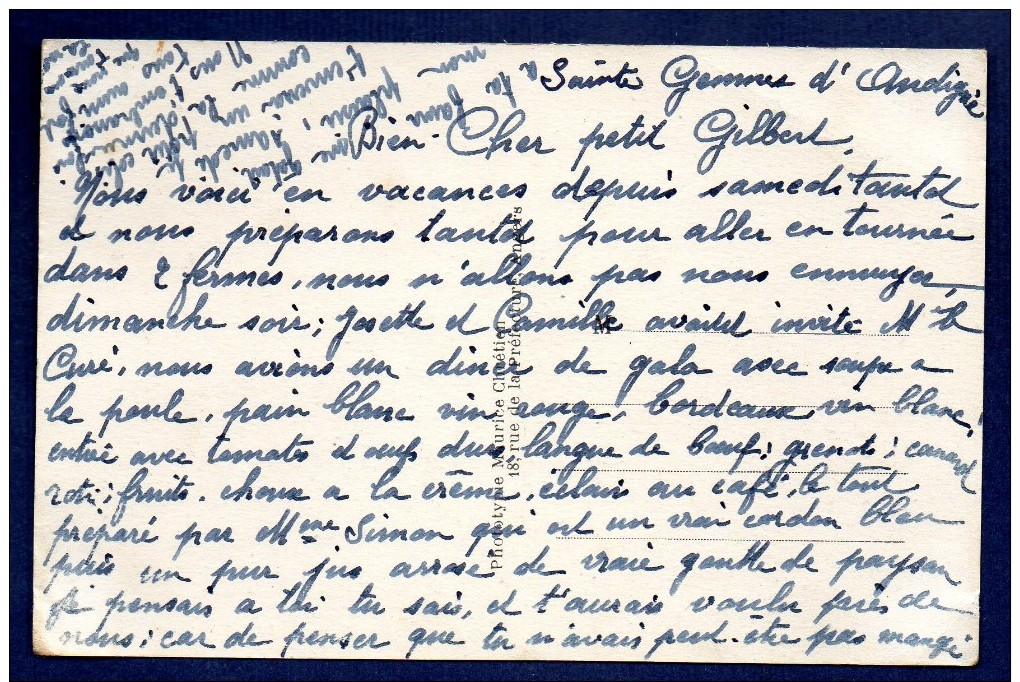 Sainte Gemmes d'Andigné
Bien Cher petit Gilbert,
Nous voici en vacances depuis samedi tantôt
et nous préparons tantôt pour aller en tournée
dans 2 fermes, nous n'allons pas nous ennuyer,
dimanche soir; Josette et Camille avaient invité Mr le
Curé, nous avions un diner de gala avec soupe a
la poule, pain blanc vin rouge, bordeaux vin blanc,
entrée avec tomates et oeufs durs, langue de boeuf; canard
roti; fruits, choux a la crème, éclairs au café, le tout
préparé par Mme Simon qui est un vrai cordon bleu
puis un pur jus arrosé de vraie goutte de paysan
je pensais a toi tu sais, et t'aurais voulu près de
nous; car de penser que tu n'avais peut-être pas mangé
Phototypie Maurice Chrétien
18 rue de la Préfecture, Angers